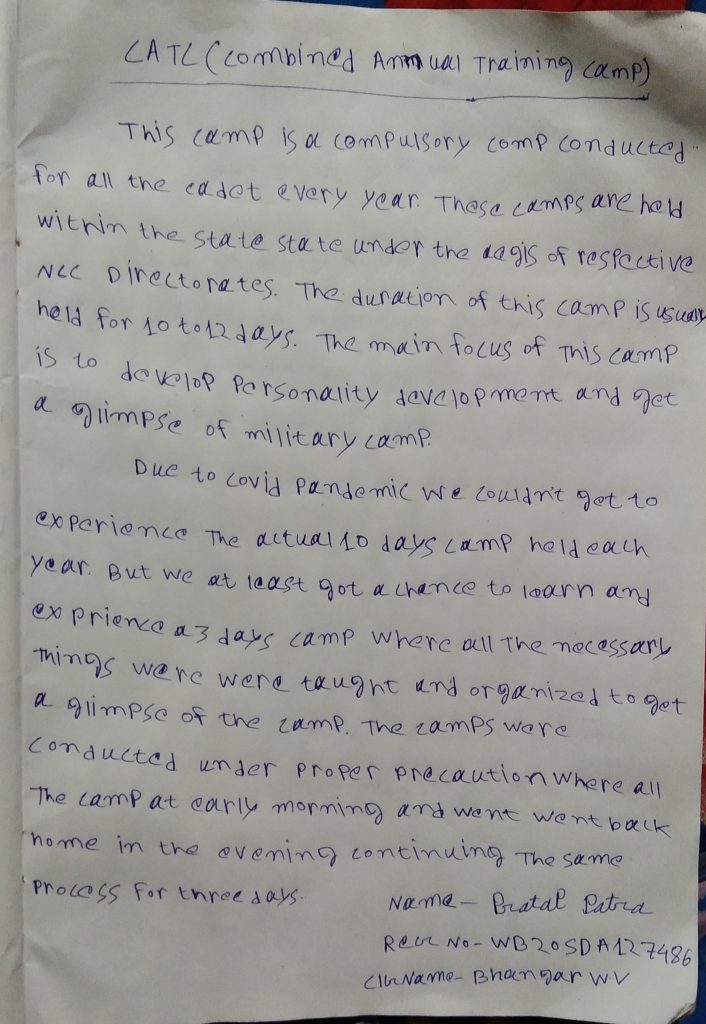 CATC (Combined Annual Training Camp)
This camp is a compulsory comp conducted
for all the cadet every year. These camps are held
within the state state under the aegis of respective
NCC Directorates. The duration of this camp is usually
held for 10 to 12 days. The main focus of This camp
is to develop personality development and get
a glimpse of military camp.
Due to covid pandemic we couldn't get to
experience The actual 10 days camp held each
year. But we at least got a chance to learn and
exprience a 3 days camp where all The necessary
Things were were taught and organized to get
a glimpse of the camp. The camps were
conducted under proper precaution where all
The camp at early morning and went went back
home in the evening continuing The same
process for three days.
Name - Pratap Patra
Regt No - WB20SDA127486
Clg Name - Bhangar WV